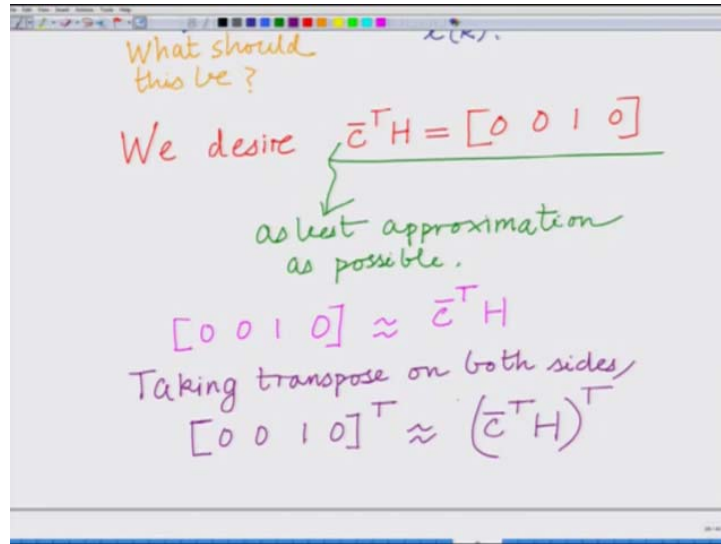 What should
this be?
x(k).
We desire c̄ᵀH = [0 0 1 0]
as best approximation
as possible.
[0 0 1 0] ≈ c̄ᵀH
Taking transpose on both sides,
[0 0 1 0]ᵀ ≈ (c̄ᵀH)ᵀ